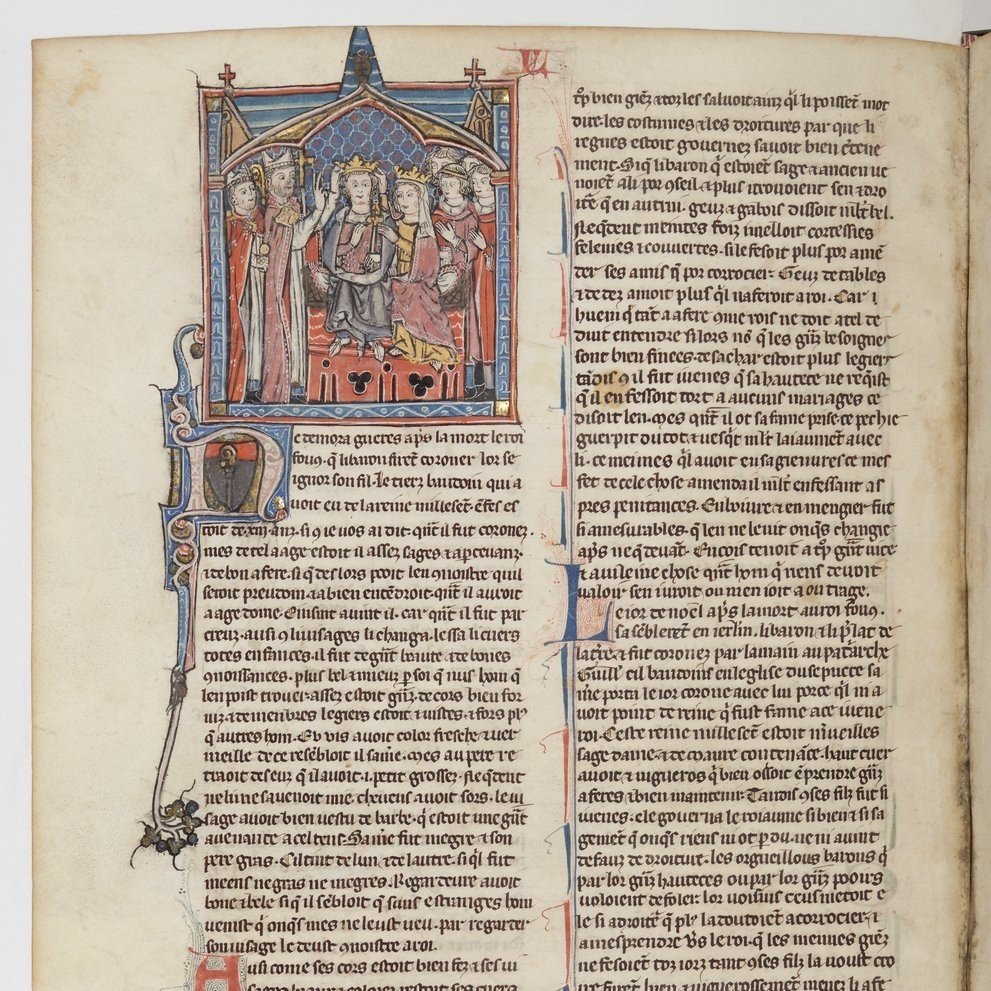 Ne demora gueres ap̃s la mort le roi
fouq. q̃ li baron firẽt coroner lor se
ignor son fil. le tierz baudoin qui a
uoit eu de la reine millesẽt. Efes es
toit de .xiij. anz. si 9 ie uos ai dit. qñt il fu coronez.
mes de tel aage estoit il assez sages ⁊ apceuanz.
⁊ de bon afere. si q̃ des lors pooit len 9noistre quil
seroit preudom ⁊ a bien entẽdroit. qñt il auroit
aage dome. Einsint auint il. car qñt il fut par
creuz. ausi 9 li uisages li changa. lessa li cuers
totes enfances. il fut de grãt beaute ⁊ de bones
9noissances. plus bel ⁊ mieuz p soi q̃ nus hom q̃
len poist trouer. assez estoit grãz de cors bien for
niz. ⁊ de menbres legiers estoit ⁊ uistes. ⁊ fors pl9
q̃ autres hom. En uis auoit color fresche ⁊ uer
meille. de ce resẽbloit il sa mie. mes au pere re
traoit de seur q̃ il auoit .i. petit grosser. Ne q̃dent
ne li mesauenoit mie. cheueus auoit sors. le ui
sage auoit bien uestu de barbe. q̃ estoit une grãt
auenante a cel tens. Sa mie fut megre ⁊ son
pere gras. Cil tint de lun ⁊ de lautre. si ql fut
meens ne gras ne megres. Regardeure auoit
bone ⁊ bele si q̃ il sẽbloit q̃ sauns estranges hom
uenist q̃ onqs mes ne leust ueu. par regarder
son uisage le deust 9noistre a roi.
Ausi come ses cors estoit bien fez ⁊ ses ui
tp bien giẽz ⁊ toz les saluoit ainz ql li poissẽt mot
dire. les costumes ⁊ les droitures par que li
regnes estoit gouernez sauoit bien ẽtiene
ment. Si q̃ li baron q̃ estoiẽt sage ⁊ ancien ue
noiẽt a li por 9seil. ⁊ plus i trouoient sen ⁊ dro
iture q̃ en autrui. geuz ⁊ gabois dissoit mlt bel.
Ne q̃dent meintes foiz i melloit cortessies
felenies ⁊ couuertes. si le fesoit plus por amẽ
der ses amis q̃ por corrocier. Geuz de tables
⁊ de dez amoit plus ql naferoit a roi. Car i
huem q̃ tãt a a fere 9me rois ne doit a tel de
duit entendre si lors nõ q̃ les grãz besoignes
sont bien finees. de sa char estoit plus legier
tãdis 9 il fut iuenes q̃ sa hautece ne reqist
q̃ il en fessoit tort a aucuns mariages ce
disoit len. Mes qñt il ot sa fame prise. ce pechie
guerpit du tot. ⁊ uesqi mlt laiaumẽt auec
li. ce meimes ql auoit en sa gienuresce mes
fet de cele chose amenda il mlt en fessant as
pres penitances. En boiure ⁊ en mengier fut
si amesurables. q̃ len ne le uit onqs changie
ap̃s ne q̃ deuãt. Encois tenoit a tp grãt uice
⁊ a uileine chose qñt hom q̃ riens deuoit
ualoir sen iuroit ou menioit a outrage.
Le ior de noel ap̃s la mort au roi fouq.
sa sẽblerẽt en ierlm. li baron ⁊ li plat de
la tre. ⁊ fut coronez par la main au patarche
Guill'. cil baudoins en leglise du sepucre. sa
me porta le ior corone auec lui. porce ql ni a
uoit point de reine q̃ fust fame a ce iuene
roi. Ceste reine millesent estoit mueilles
sage dame. ⁊ de coiure contenãce. haut cuer
auoit ⁊ uigueros q̃ bien ossoit ẽprendre grãz
aferes ⁊ bien maintenir. Tandis 9 ses filz fut si
iuenes. ele gouerna le roiaume si bien ⁊ si sa
gemẽt q̃ onqs riens ni ot pdu. ne ni auint
defauz de droiture. les orgueillous barons q̃
par lor grãz hauteces ou par lor grãz pooirs
uoloient defoler lor uoisins ceus metoit e
le si a droite q̃ pl9 la doutoiẽt a corrocier. ⁊
a mesprendre u̾s le roi. q̃ les menues giẽz
ne fesoiẽt toz iorz. tant 9 ses filz la uolt cro